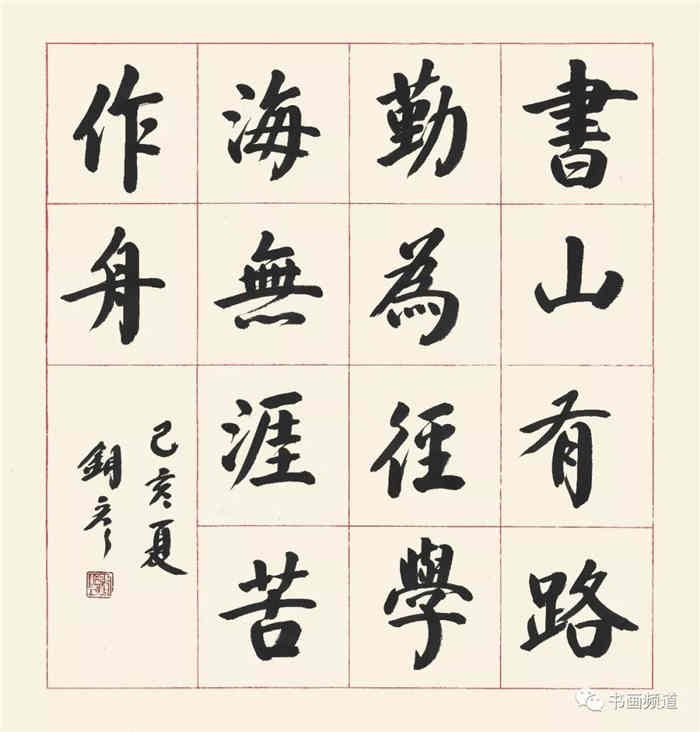 書山有路
勤為徑學
海無涯苦
作舟
己亥夏
銅彥
书画频道